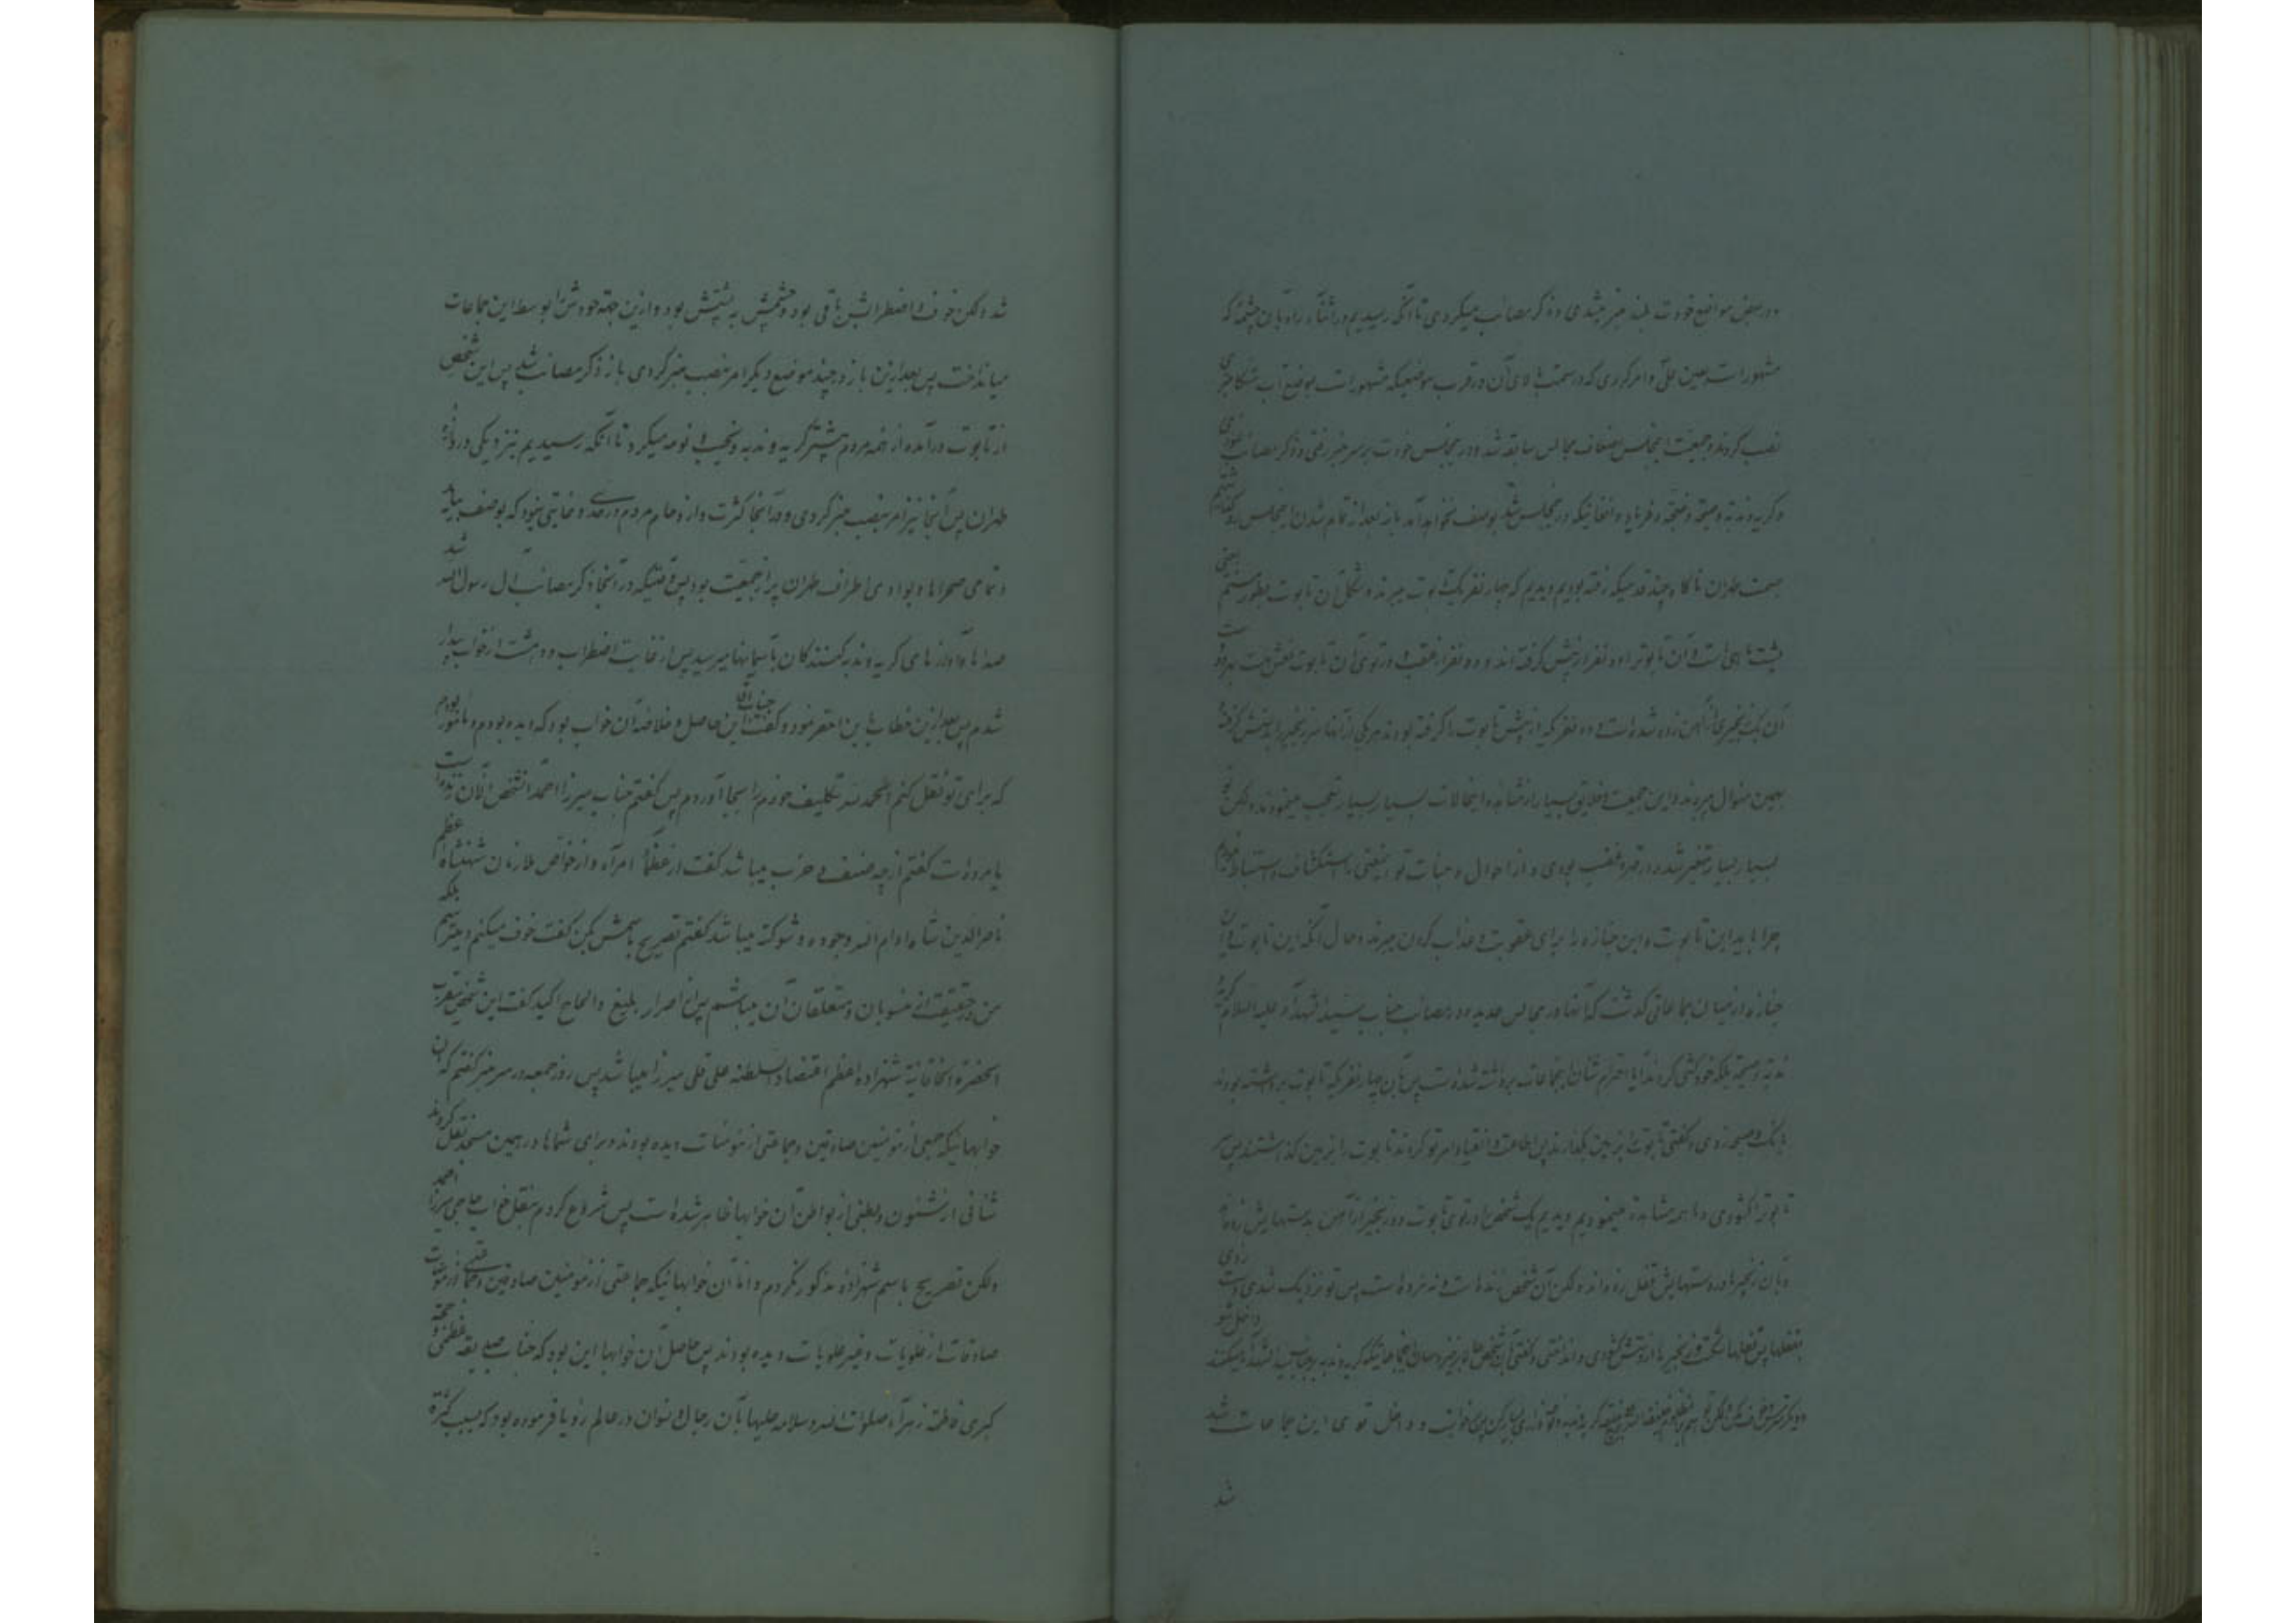 و در بعض مواضع خودت بلند منبر میشدی و ذکر مصائب میکردی تا آنکه رسیدیم در اثناء راه بآن چشمه که
مشهور است بعین علی و امر کردی که در سمت بالای آن در قرب موضعیکه مشهور است بموضع آب
نصب کردند و جمعیت مجلس مضاعف مجالس سابقه شد و در مجلس خودت بر سر منبر رفتی و ذکر مصائب نمودی
و گریه و ندبه و صیحه و ضجه و فریاد و افغانیکه در مجلس شد بوصف نخواهد آمد باز بعد از تمام شدن مجلس
سمت طهران ناگاه چند قدمیکه رفته بودیم دیدیم که چهار نفر یک تابوت میبرند و شکل آن تابوت بطور
پشت ماهی است و آن تابوترا دو نفر از پیش گرفته‌اند و دو نفر از عقب و در توی آن تابوت نعش میت
آن یک زنجیری از آهن زده شده است و دو نفر که از پیش تابوت را گرفته بودند هر یکی از آنها سر زنجیر را بدستش گرفته
بهمین منوال میبردند و این جمعیت و خلایق بسیار از مشاهده اینحالات بسیار بسیار تعجب مینمودند ولکن تو
بسیار بسیار متغیر شده و در قهر و غضب بودی و از احوال و حیات تو
چرا باید این تابوت و این جنازه را برای عقوبت و عذاب کردن میبرند و حال آنکه این تابوت و این
جنازه از میان جماعاتی گذشت که آنها در مجالس عدیده در مصائب جناب سید الشهداء علیه السلام گریه
ندبه و صیحه بلکه خودکشی کردند آیا احترام شأن اینجماعات برداشته شده است پس بآن چهار نفر که تابوت برداشته بودند
بانک و صیحه زدی و گفتی تابوت را بزمین بگذارند پس اطاعت و انقیاد امر تو کردند تابوت را بزمین گذاشتند پس سر
تابوترا گشودی و ما همه مشاهده مینمودیم و دیدیم یک شخصی در توی تابوت و زنجیر از آهن بدستهایش زده‌اند
و بآن زنجیرها در دستهایش قفل زده‌اند ولکن آن شخص زنده است و نه مرده است پس تو نزدیک شدی و دست زدی
بقفلها پس قفلها شکست و زنجیرها از دستش گشودی و انداختی و گفتی بآن شخص حالا برخیز و میان اینجماعاتیکه گریه و ندبه بر جناب سید الشهداء میکنند داخل شو
و دیگر ترس و خوف مکن ولکن تو هم و داخل توی این جماعات شد
شد
شد ولکن خوف و اضطرابش باقی بود و چشمش به پشتش بود و از این جهة خودش را بوسط این جماعات
میانداخت پس بعد از این باز در چند موضع دیگر امر بنصب منبر کردی باز ذکر مصائب شد پس این شخص
از تابوت درآمده از همه مردم بیشتر گریه و ندبه و نحیب و نوحه میکرد تا آنکه رسیدیم بنزدیکی دروازه
طهران پس آنجا نیز امر بنصب منبر کردی و در آنجا کثرت و ازدحام مردم در حد و غایتی نبود که بوصف بیاید
و تمامی صحراها و بوادی اطراف طهران پر از جمعیت بود پس وقتیکه در آنجا ذکر مصائب آل رسول الله شد
صداها و آوازهای گریه و ندبه کنندگان بآسمانها میرسید پس از غایت اضطراب و دهشت از خواب بیدار
شدم پس بعد از این خطاب باین احقر نمود و گفت جناب آقا این حاصل و خلاصه آن خواب بود که دیده بودم و مأمور بودم
که برای تو نقل کنم الحمد لله تکلیف خودم را بجا آوردم پس گفتم جناب میرزا احمد آنشخص الآن زنده است
یا مرده است گفتم از چه صنف و حزب میباشد گفت از عظماء امراء و از خواص ملازمان شهنشاه اعظم
ناصرالدین شاه ادام الله وجوده و شوکته میباشد گفتم تصریح باسمش بکن گفت خوف میکنم و میترسم بلکه
من در حقیقت از منسوبان و متعلقان آن میباشم پس از اصرار بلیغ و الحاح اکید گفت این شخص مقرب
الحضرة الخاقانیة شهزاده اعظم اعتضاد السلطنه علی قلی میرزا میباشد پس روز جمعه در سر منبر گفتم که آن
خوابهائیکه جمعی از مؤمنین صادقین و جماعتی از مؤمنات دیده بودند و برای شماها در همین مسجد نقل کردند
شأنی از شئون و بطنی از بواطن آن خوابها ظاهر شده است پس شروع کردم بنقل خواب حاجی میرزا احمد
ولکن تصریح باسم شهزاده مذکور نکردم و اما آن خوابهائیکه جماعتی از مؤمنین صادقین و جماعتی از مؤمنات
صادقات از علویات و غیر علویات دیده بودند پس حاصل آن خوابها این بود که جناب صدیقه عظمی و حجة
کبری فاطمه زهراء صلوات الله و سلامه علیها بآن رجال و نسوان در عالم رؤیا فرموده بود که بسبب کثرة